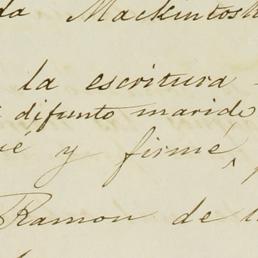 da Mackintosh
la escritura
difunto marido
é y firmé,
Ramon de